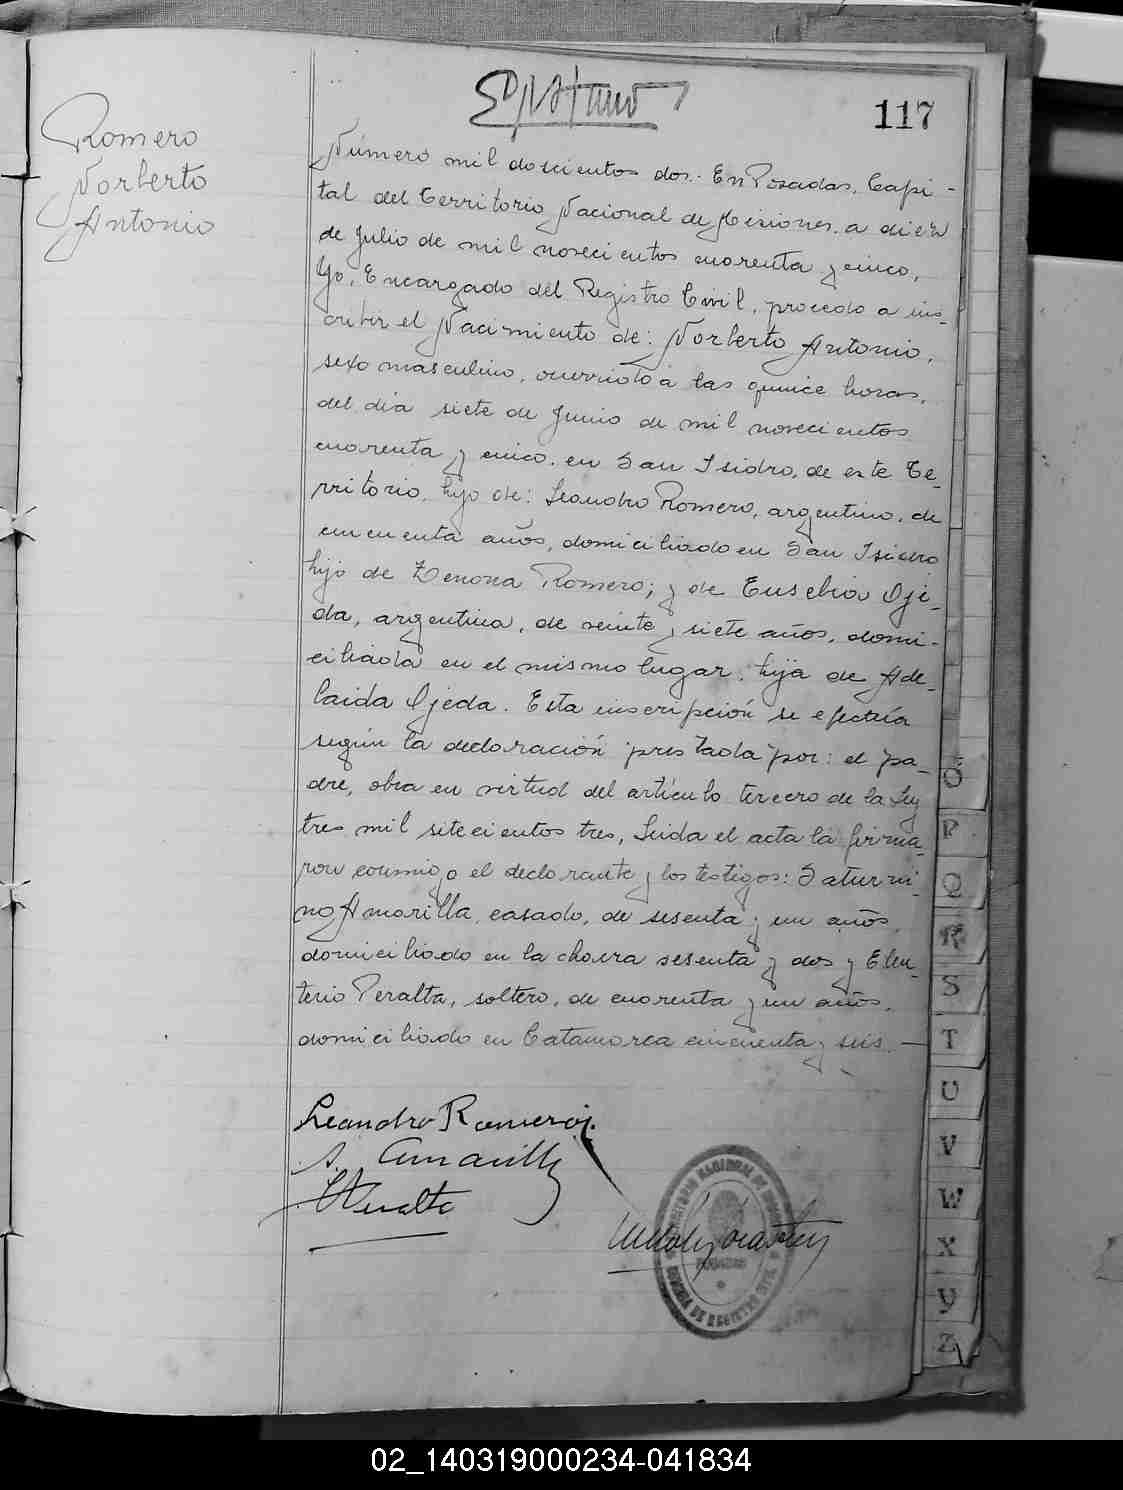 117
Romero
Norberto
Antonio
Número mil doscientos dos. En Posadas, Capi-
tal del Territorio Nacional de Misiones, a diez
de Julio de mil novecientos cuarenta y cinco,
Yo, Encargado del Registro Civil, procedo a ins-
cribir el Nacimiento de: Norberto Antonio,
sexo masculino, ocurrido a las quince horas,
del día siete de Junio de mil novecientos
cuarenta y cinco, en San Isidro, de este Te-
rritorio, hijo de: Leandro Romero, argentino, de
cincuenta años, domiciliado en San Isidro
hijo de Zenona Romero; y de Eusebia Oje-
da, argentina, de veinte y siete años, domi-
ciliada en el mismo lugar, hija de Ade-
laida Ojeda. Esta inscripción se efectúa
según la declaración prestada por: el pa-
dre, obra en virtud del artículo tercero de la Ley
tres mil setecientos tres, Leida el acta la firma-
ron conmigo el declarante y los testigos: Saturni-
no Amarilla, casado, de sesenta y un años,
domiciliado en la chacra sesenta y dos y Eleu-
terio Peralta, soltero, de cuarenta y un años,
domiciliado en Catamarca cincuenta y seis.
Leandro Romero
S. Amarilla
Peralta
TERRITORIO NACIONAL DE MISIONES
POSADAS
OFICINA DE REGISTRO CIVIL
O
P
Q
R
S
T
U
V
W
X
Y
Z
02_140319000234-041834